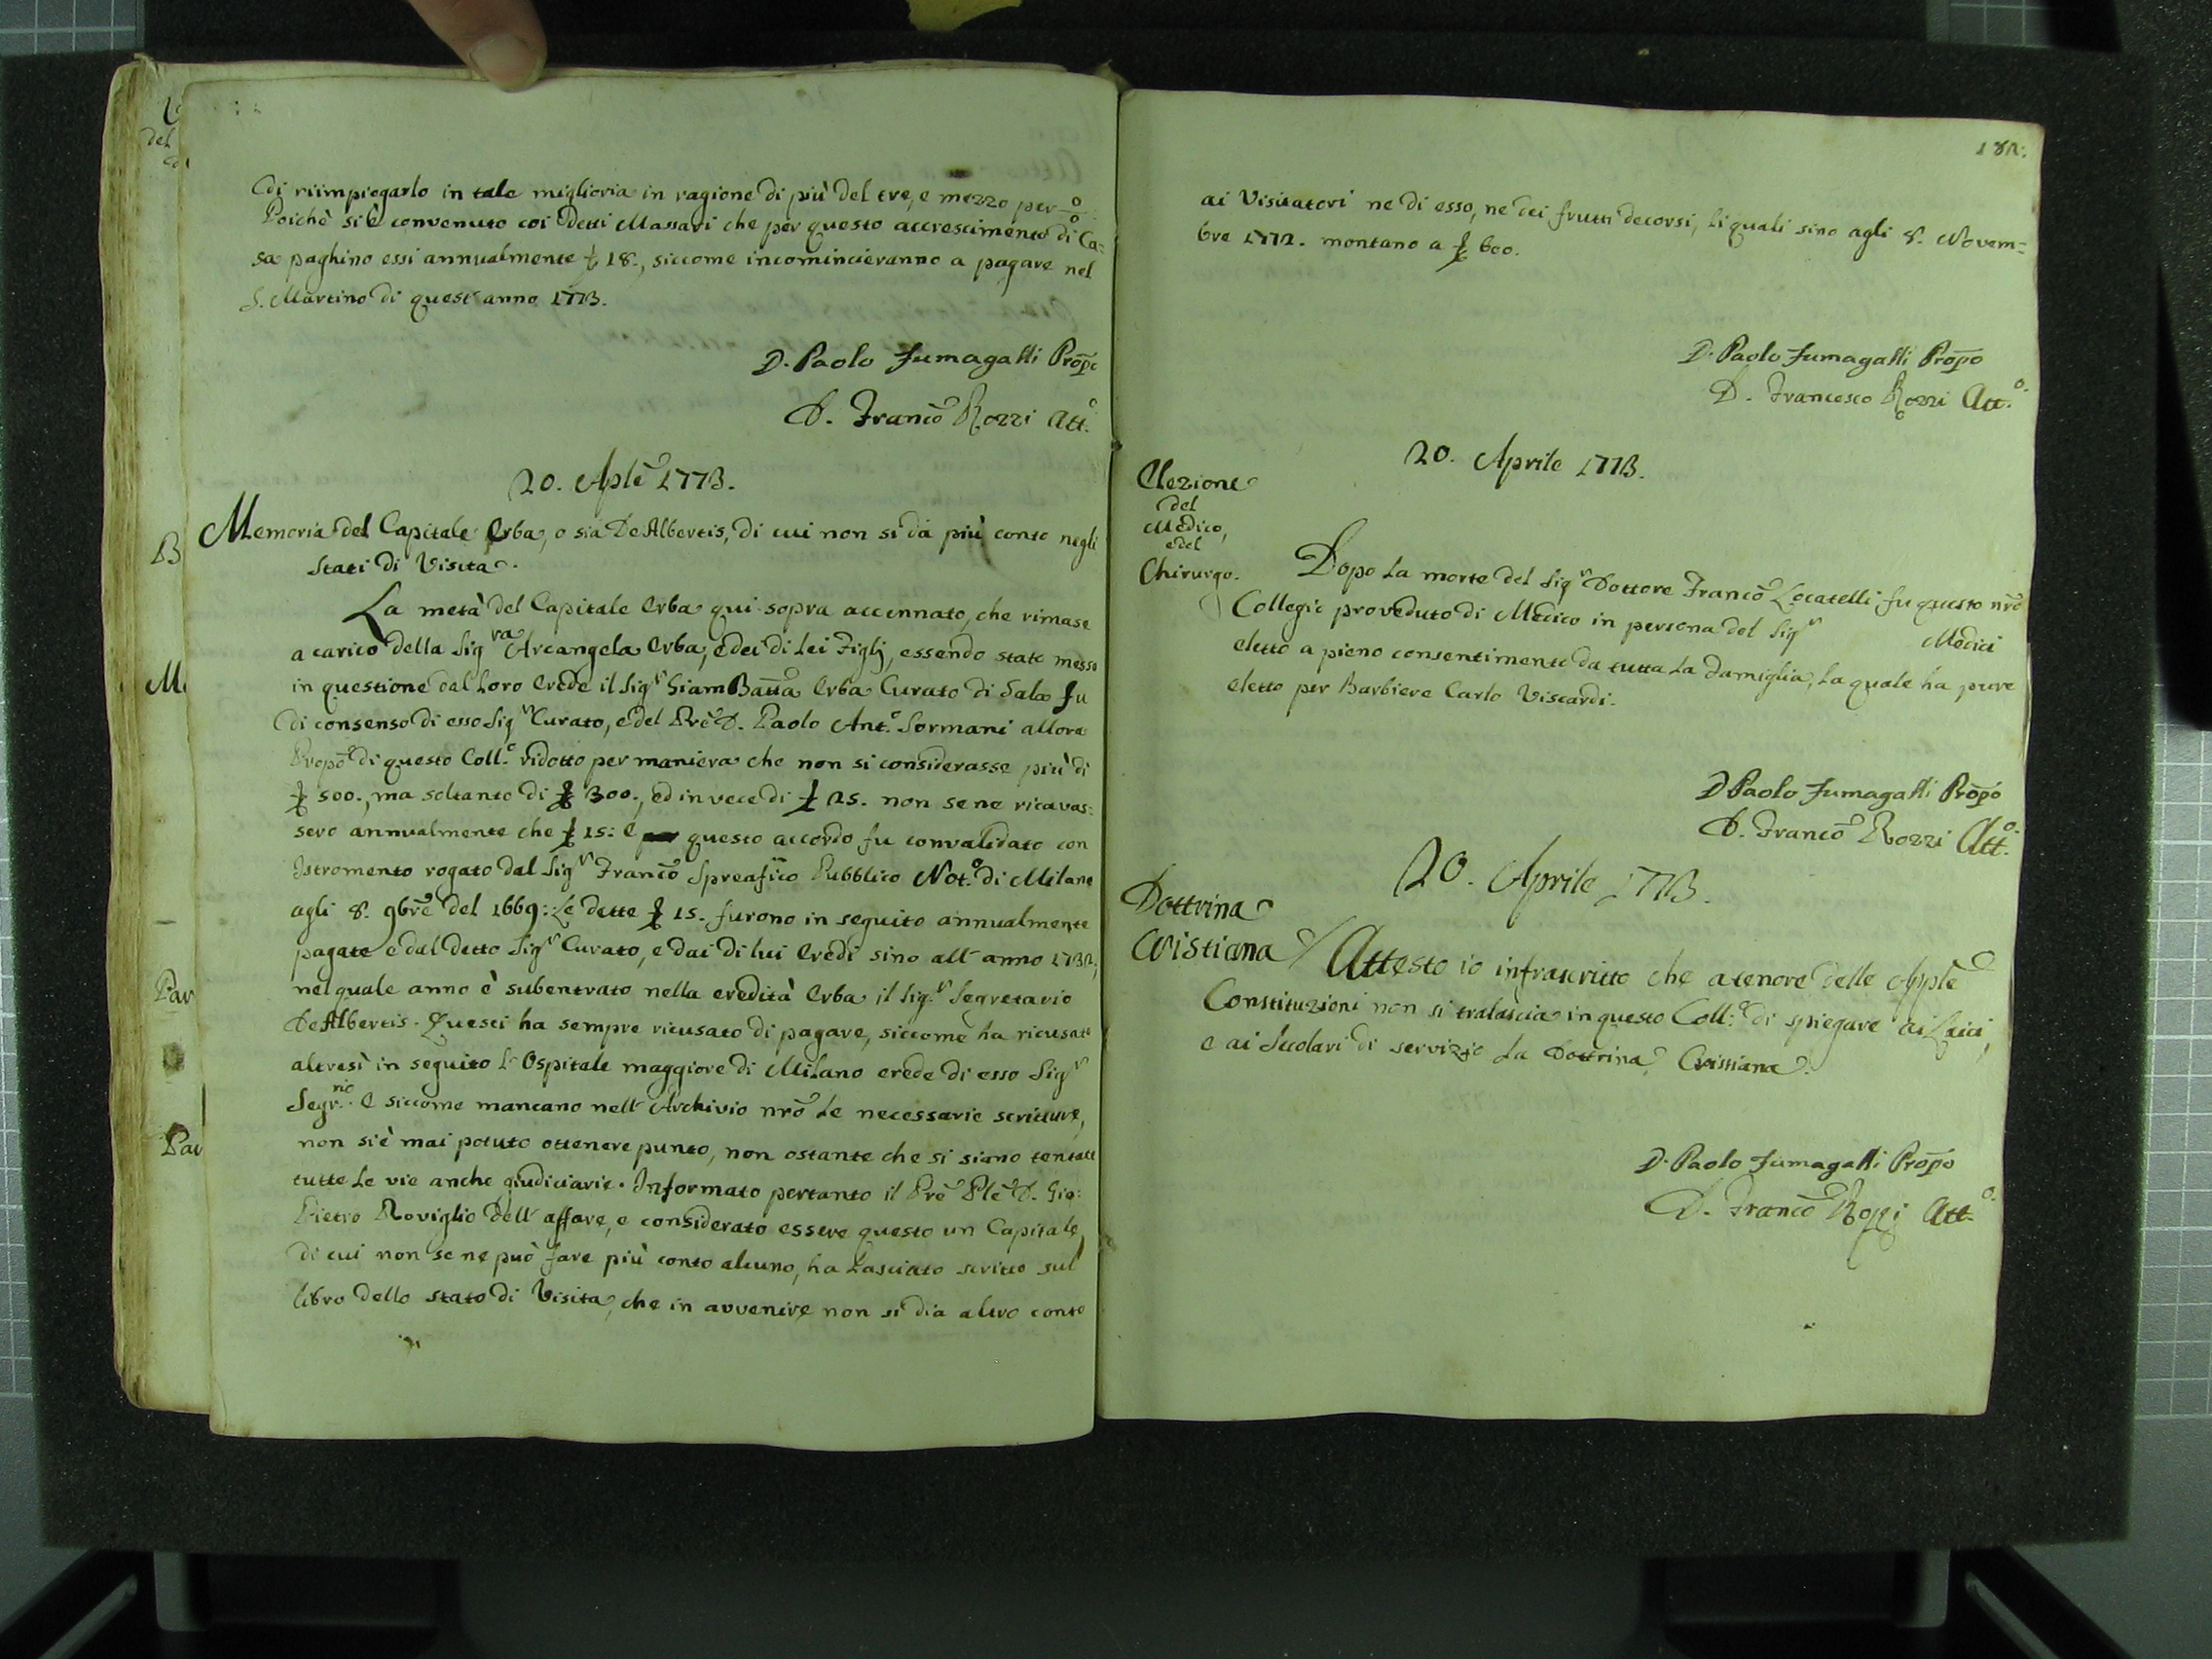 di riimpiegarlo in tale miglioria in ragione di più del tre, e mezzo per o/o.
Poichè si è convenuto coi detti Massari che per questo accrescimento di Ca=
sa paghino essi annualmente £ 18., siccome incomincieranno a pagare nel
S. Martino di quest' anno 1773.
D. Paolo Fumagalli Propo
D. Franco Rozzi Att.o
20. Aple 1773.
Memoria del Capitale Erba, o sia De Albertis, di cui non si dà più conto negli
stati di Visita.
La metà del Capitale Erba qui sopra accennato, che rimase
a carico della Sigra Arcangela Erba, e dei di lei Figlj, essendo stato messo
in questione dal loro Erede il Sigr GiamBatta Erba Curato di Sala fu
di consenso di esso Sigr Curato, e del Pre D. Paolo Ant.o Sormani allora
Propo di questo Coll.o ridotto per maniera che non si considerasse più di
£ 500., ma soltanto di £ 300., ed in vece di £ 25. non se ne ricavas=
sero annualmente che £ 15: E questo accordo fu convalidato con
Istromento rogato dal Sigr Franco Spreafico Pubblico Not.o di Milano
agli 8. 9bre del 1669: Le dette £ 15. furono in seguito annualmente
pagate e dal detto Sigr Curato, e dai di lui Eredi sino all' anno 1732,
nel quale anno è subentrato nella eredità Erba il Sig.r Segretario
De Albertis. Questi ha sempre ricusato di pagare, siccome ha ricusato
altresì in seguito l' Ospitale maggiore di Milano erede di esso Sigr
Segr.rio. E siccome mancano nell' Archivio nro le necessarie scritture,
non si è mai potuto ottenere punto, non ostante che si siano tentate
tutte le vie anche giudiciarie. Informato pertanto il Pre Ple D. Gio:
Pietro Roviglio dell' affare, e considerato essere questo un Capitale,
di cui non se ne può fare più conto alcuno, ha lasciato scritto sul
libro dello stato di Visita, che in avvenire non si dia altro conto
182.
ai Visitatori ne di esso, ne dei frutti decorsi, li quali sino agli 8. Novem=
bre 1772. montano a £ 600.
D. Paolo Fumagalli Propo
D. Francesco Rozzi Att.o
20. Aprile 1773.
Elezione
del
Medico,
e del
Chirurgo.
Dopo la morte del Sigr Dottore Franco Locatelli fu questo nro
Collegio proveduto di Medico in persona del Sigr Medici
eletto a pieno consentimento da tutta la Famiglia, la quale ha pure
eletto per Barbiere Carlo Viscardi.
D Paolo Fumagalli Propo
D. Franco Rozzi Att.o
20. Aprile 1773.
Dottrina
Cristiana
Attesto io infrascritto che a tenore delle Apple
Constituzioni non si tralascia in questo Coll.o di spiegare ai Laici,
e ai Scolari di servizio la Dottrina Cristiana.
D. Paolo Fumagalli Propo
D. Franco Rozzi Att.o